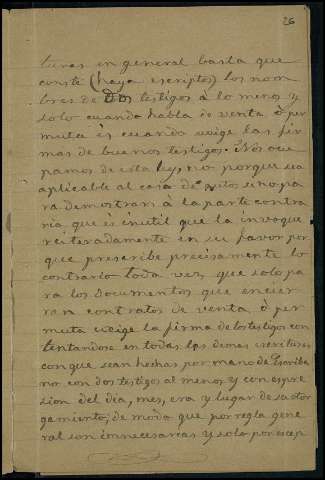 26
turas en general basta que
conste (haya escriptos) los nom
bres de DOS testigos à lo menos y
solo cuando habla de venta ò per
muta és cuando exige las fir
mas de buenos testigos. Nos ocu
pamos de esta ley, no porque sea
aplicable al caso de autos sino pa
ra demostrar à la parte contra
ria que és inutil que la invoque
reiteradamente en su favor por
que prescribe precisamente lo
contrario toda vez que solo pa
ra los documentos que encier
ran contratos de venta ò per
muta exige la firma de los testigos con
tentandose en todas las demas escrituras
con que sean hechas por mano de Escriba
no con dos testigos al menos y con espre
sion del dia, mes, era y lugar de su otor
gamiento; de modo que por regla gene
ral son innecesarias y solo por escep